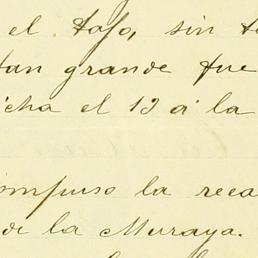 el Tajo, sin
tan grande fue
el 19 á la
impuso la
de la Muraya.